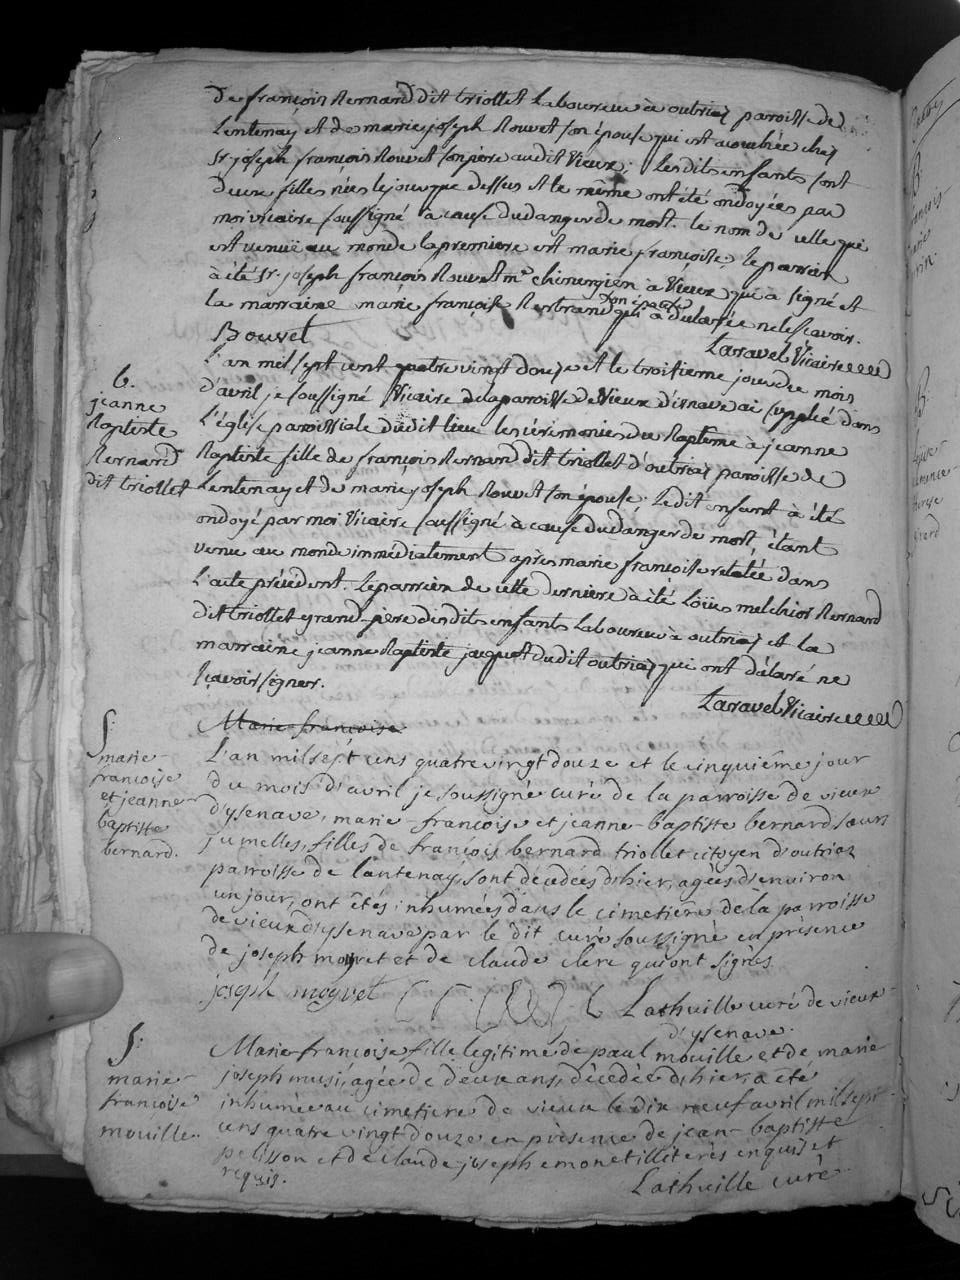 De françois Bernard dit triollet Laboureur à outriaz paroisse de
Lentenay et de marie joseph Bouvet son épouse qui est acouchée chez
Sr. joseph françois Bouvet son père audit Vieux; Lesdits enfants sont
deux filles nées le jour que dessus et le même ont été ondoyées par
moi vicaire soussigné à cause du danger de mort. le nom de celle qui
est venuë au monde la premiere est marie françoise; le parrain
à été Sr. joseph françois Bouvet me chirurgien à Vieux qui a signé et
son épouse
la marraine marie françoise Bertrand qui a déclarée ne le scavoir.
Bouvet
Laravel Vicaire
L'an mil sept cent quatre vingt douze et le troisieme jour du mois
6.
jeanne
Baptiste
Bernard
dit triollet
d'avril je soussigné Vicaire de la paroisse de Vieux d'isnave ai supplié dans
L'église paroissiale dudit lieu les cérémonies du Baptême à jeanne
Baptiste fille de françois Bernard dit triollet d'outriaz paroisse de
Lentenay et de marie joseph Bouvet son épouse; Ledit enfant à été
ondoyé par moi Vicaire soussigné à cause du danger de mort, étant
venu au monde immédiatement après marie françoise relatée dans
L'acte précédent. Le parrain de cette derniere à été Loüis melchior Bernard
dit triollet grand-père desdits enfants Laboureur à outriaz et la
marraine jeanne Baptiste jacquet dudit outriaz qui ont déclaré ne
sçavoir signer.
Laravel Vicaire
Marie françoise
S:
marie-
françoise
et jeanne-
baptiste
bernard.
L'an mil sept cens quatre vingt douze et le cinquième jour
du mois d'avril je soussigné curé de la parroisse de vieux
d'ysenave, marie-françoise et jeanne-baptiste bernard sœurs
jumelles, filles de françois bernard triollet citoyen d'outriaz
paroisse de lantenay, sont décédées d'hier, agées d'environ
un jour, ont étés inhumées dans le cimetière de la parroisse
de vieux d'ysenave par le dit curé soussigné en présence
de joseph moyret et de claude clerc qui ont signés
joseph moyret
Lathuille curé de vieux-
d'ysenave.
S:
marie-
françoise
mouille.
Marie-françoise fille légitime de paul mouille et de marie
joseph musi, agée de deux ans, décédée d'hier, a été
inhumée au cimetière de vieux le dix neuf avril mil sept
cens quatre vingt douze en présence de jean-baptiste
pelisson et de claude joseph emonet illiterés enquis et
requis.
Lathuille curé